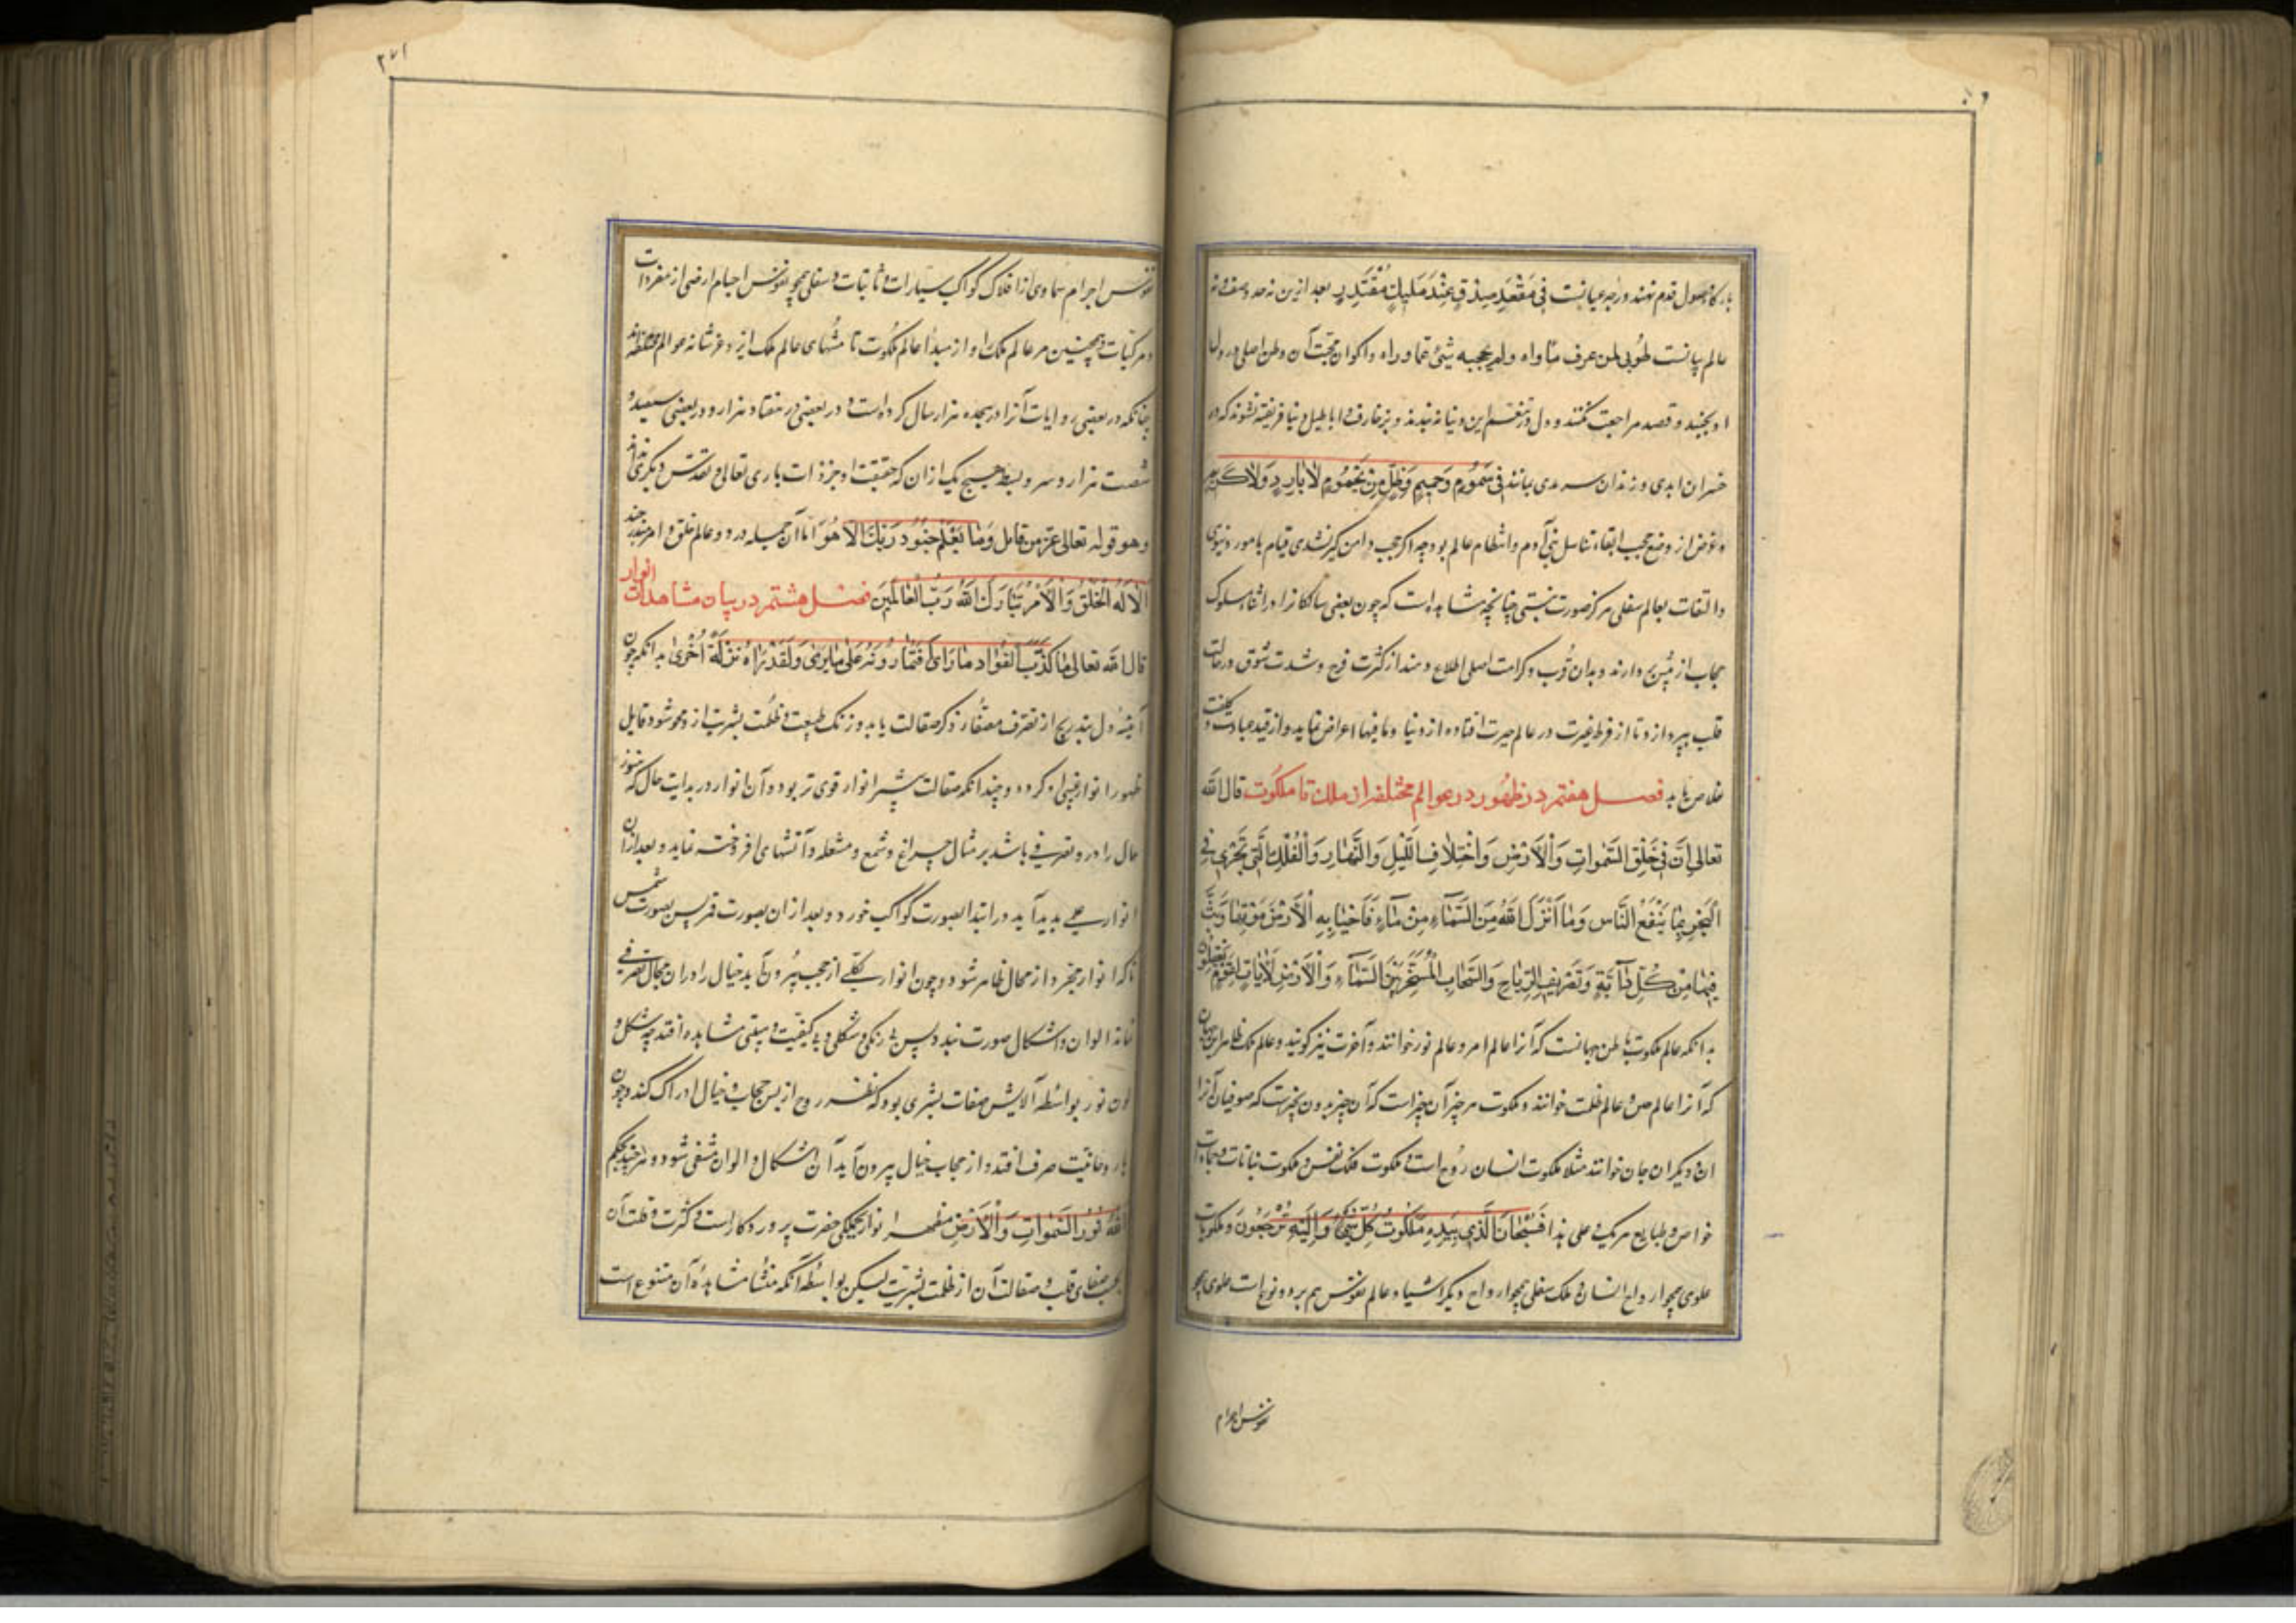 بارگاه وصول قدم نهند و رتبه عیانست فی مقعد صدق عند ملیک مقتدر بعد ازین نه حد وصف و نه
عالم بیانست طوبی لمن عرف مأواه ولم یحجبه شئ عما وراه واکوان محبت آن وطن اصلی در دل
او بجنبد و قصد مراجعت نکنند و دل در تنعم این دنیا نه بندند و بزخارف و اباطیل دنیا فریفته نشوند که در
خسران ابدی و زندان سرمدی بمانند فی سموم وحمیم وظل من یحموم لا بارد ولا کریم
و غرض از وضع حجب ابقاء تناسل بنی آدم و انتظام عالم بود چه اگر حجب دامن گیر نشدی قیام بامور دنیوی
و التفات بعالم سفلی هرگز صورت نبستی چنانچه مشاهد است که چون بعضی سالکانرا در اثناء سلوک
حجاب از پیش بردارند و بدان قرب و کرامت اصلی اطلاع دهند از کثرت فرح و شدت شوق در حالت
قلب بپردازد تا از فرط غیرت در عالم حیرت افتاده از دنیا و ما فیها اعراض نماید و از قید عبادت و کلفت
خلاص یابد فصل هفتم در ظهور در عوالم مختلفه از ملک تا ملکوت قال الله
تعالی ان فی خلق السموات والارض واختلاف اللیل والنهار والفلک التی تجری فی
البحر بما ینفع الناس وما انزل الله من السماء من ماء فاحیا به الارض بعد موتها وبث
فیها من کل دآبة وتصریف الریاح والسحاب المسخر بین السماء والارض لایات لقوم یعقلون
بدانکه عالم ملکوت باطن جهانست که آنرا عالم امر و عالم نور خوانند و آخرت نیز گویند و عالم ملک ظاهر این جهان
که آنرا عالم حس و عالم ظلمت خوانند و ملکوت هر چیز آن چیز است که آن چیز بدون بچیزست که صوفیان آنرا
ان و دیگران جان خوانند مثلا ملکوت انسان روح است و ملکوت فلک نفس و ملکوت نباتات و جمادات
خواص و طبایع مرکب و علی هذا فسبحان الذی بیده ملکوت کل شئ والیه ترجعون و ملکوتیات
علوی همچو ارواح انسان و ملک سفلی همچو ارواح دیگر اشیا و عالم نفوس هم بر دو نوع است علوی همچو
نفوس اجرام
۲۷۱
نفوس اجرام سماوی از افلاک کواکب سیارات و ثابتات و سفلی همچو نفوس اجسام ارضی از مفردات
و مرکبات و همچنین مر عالم ملک او از مبدأ عالم ملکوت تا منتهای عالم ملک ایزد عز شانه عوالم مختلفه
چنانکه در بعضی روایات آنرا در هیجده هزار سال کرده است و در بعضی در هفتاد هزار و در بعضی سیصد و
شصت هزار و سر و بسط هیچ یک از آن که حقیقت او جز ذات باری تعالی و تقدس دیگری نداند
وهو قوله تعالی عز من قائل وما یعلم جنود ربک الا هو اما آن جمله در دو عالم خلق و امر مندرجند
الا له الخلق والامر تبارک الله رب العالمین فصل هشتم در بیان مشاهدات انوار
قال الله تعالی ما کذب الفواد ما رای افتمارونه علی ما یری ولقد راه نزلة اخری بدانکه چون
آینه دل بتدریج از تصرف مصقل ذکر صقالت یابد و زنگ طبیعت و ظلمت بشریت از و محو شود قابل
ظهور انوار غیبی گردد و چندانکه صقالت بیشتر انوار قوی تر بود و آن انوار در بدایت حال که هنوز
خیال را در و تصرفی باشد بر مثال چراغ و شمع و مشعله و آتشهای افروخته نماید و بعد از آن
انوار علوی پدید آید در ابتدا بصورت کواکب خورد و بعد از آن بصورت قمر پس بصورت شمس
تا که انوار مجرد از محال ظاهر شود و چون انوار بکلی از حجب بیرون آید خیال را در آن مجال تصرفی
نماند الوان و اشکال صورت نبندد پس بی رنگی و بی شکلی و بی کیفیت و هیئتی مشاهده افتد چه شکل و
لون نور بواسطه آلایش صفات بشری بود که نظر روح از پس حجاب خیال ادراک کند و چون
با روحانیت صرف افتد و از حجاب خیال بیرون آید آن اشکال و الوان منتفی شود و هر چند بحکم
الله نور السموات والارض مظهر انوار جملگی حضرت پروردگار است و کثرت و قلت آن
بحسب صفای قلب و صقالت آن از ظلمت بشریت لیکن بواسطه آنکه منشأ مشاهده آن متنوع است